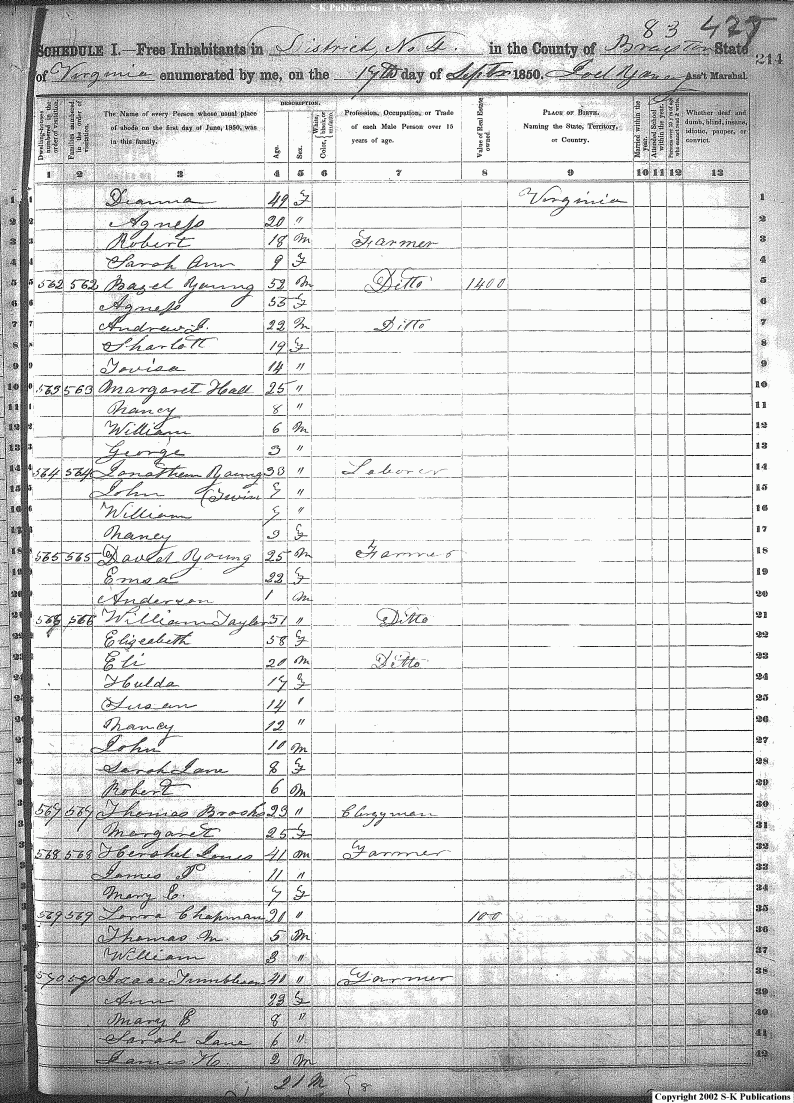 S-K Publications - USGenWeb Archives
83 427
SCHEDULE I.—Free Inhabitants in District No. 4. in the County of Braxton State
214
of Virginia enumerated by me, on the 17th day of Septr 1850. Joel Yancy Ass't Marshal.
Dwelling-houses numbered in the order of visitation.
Families numbered in the order of visitation.
The Name of every Person whose usual place of abode on the first day of June, 1850, was in this family.
DESCRIPTION.
Age.
Sex.
Color, White, black, or mulatto.
Profession, Occupation, or Trade of each Male Person over 15 years of age.
Value of Real Estate owned.
PLACE OF BIRTH. Naming the State, Territory, or Country.
Married within the year.
Attended School within the year.
Persons over 20 y'rs of age who cannot read & write.
Whether deaf and dumb, blind, insane, idiotic, pauper, or convict.
1 2 3 4 5 6 7 8 9 10 11 12 13
1 Dianna 49 F Virginia 1
2 Agness 20 " 2
3 Robert 18 M Farmer 3
4 Sarah Ann 9 F 4
5 562 562 Bazel Young 52 M Ditto 1400 5
6 Agness 53 F 6
7 Andrew J. 22 M Ditto 7
8 Sharlott 19 F 8
9 Tovisa 14 " 9
10 563 563 Margaret Hall 25 " 10
11 Nancy 8 " 11
12 William 6 M 12
13 George 3 " 13
14 564 564 Jonathem Young 33 " Laborer 14
15 John (Twin 7 " 15
16 William 7 " 16
17 Nancy 3 F 17
18 565 565 David Young 25 M Farmer 18
19 Emsa 22 F 19
20 Anderson 1 M 20
21 566 566 William Taylor 51 " Ditto 21
22 Elizeabeth 58 F 22
23 Eli 20 M Ditto 23
24 Hulda 17 F 24
25 Susan 14 " 25
26 Nancy 12 " 26
27 John 10 M 27
28 Sarah Jane 8 F 28
29 Robert 6 M 29
30 567 567 Thomas Brooks 23 " Clergyman 30
31 Margaret 25 F 31
32 568 568 Hershel Jones 41 M Farmer 32
33 James P 11 " 33
34 Mary E. 7 F 34
35 569 569 Lorra Chapman 20 " 100 35
36 Thomas M. 5 M 36
37 William 3 " 37
38 570 570 Isaac Trimbleson 41 " Farmer 38
39 Ann 23 F 39
40 Mary E 8 " 40
41 Sarah Jane 6 " 41
42 James H. 2 M 42
21 M
Copyright 2002 S-K Publications